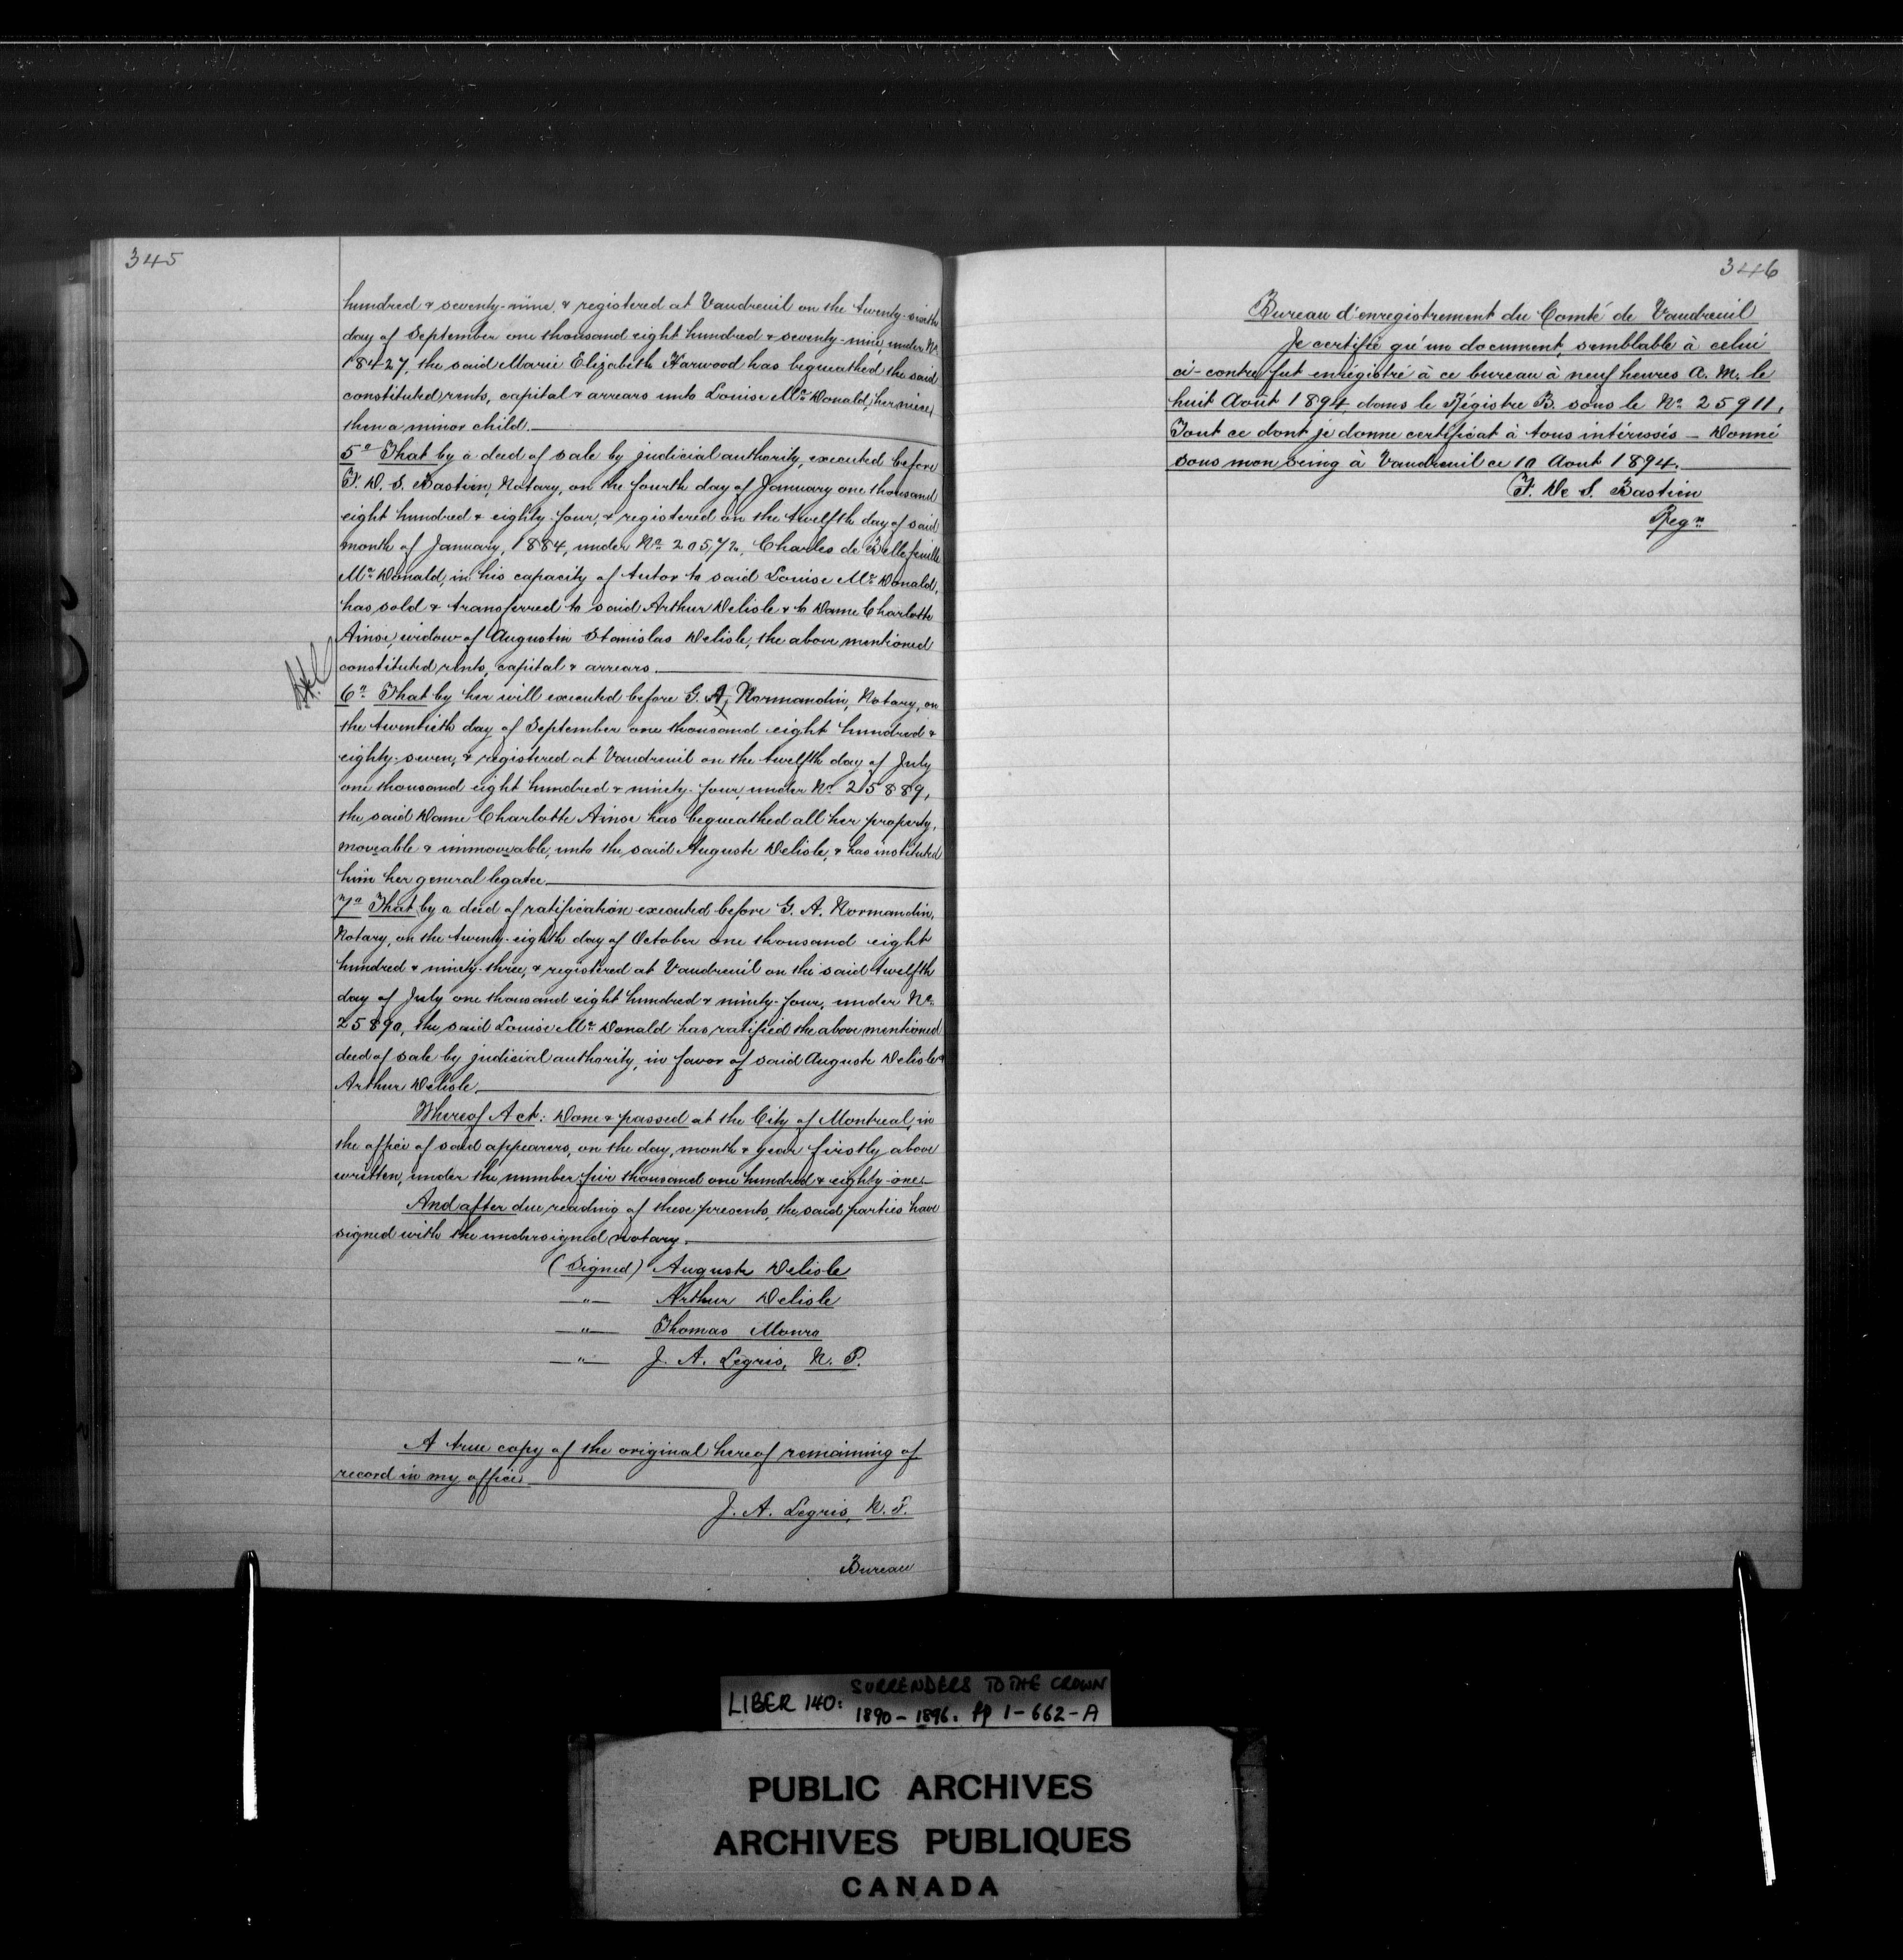 345
hundred & seventy-nine, & registered at Vaudreuil on the twenty-sixth
day of September one thousand eight hundred & seventy-nine, under No
18427, the said Marie Elizabeth Harwood has bequeathed the said
constituted rents, capital & arrears unto Louise Mc Donald, her niece,
then a minor child.
5o That by a deed of sale by judicial authority, executed before
F. D. S. Bastien, Notary, on the fourth day of January one thousand
eight hundred & eighty-four, & registered on the twelfth day of said
month of January, 1884, under No 20572, Charles de Bellefeuille
Mc Donald, in his capacity of tutor to said Louise Mc Donald,
has sold & transferred to said Arthur Delisle & to Dame Charlotte
Ainse, widow of Augustin Stanislas Delisle, the above mentioned
constituted rents, capital & arrears.
6o That by her will executed before G. A. Normandin, Notary, on
the twentieth day of September one thousand eight hundred &
eighty-seven, & registered at Vaudreuil on the twelfth day of July
one thousand eight hundred & ninety-four, under No 25889,
the said Dame Charlotte Ainse has bequeathed all her property,
moveable & immoveable, unto the said Auguste Delisle, & has instituted
him her general legatee.
7o That by a deed of ratification executed before G. A. Normandin,
Notary, on the twenty-eighth day of October one thousand eight
hundred & ninety-three, & registered at Vaudreuil on the said twelfth
day of July one thousand eight hundred & ninety-four, under No
25890, the said Louise Mc Donald has ratified the above mentioned
deed of sale by judicial authority, in favor of said Auguste Delisle &
Arthur Delisle.
Whereof Act: Done & passed at the City of Montreal, in
the office of said appearers, on the day, month & year firstly above
written, under the number five thousand one hundred & eighty-one.
And after due reading of these presents, the said parties have
signed with the undersigned notary.
(Signed) Auguste Delisle
" Arthur Delisle
" Thomas Monro
" J. A. Legris, N. P.
A true copy of the original hereof remaining of
record in my office.
J. A. Legris, N. P.
Bureau
346
Bureau d'enregistrement du Comté de Vaudreuil
Je certifie qu'un document, semblable à celui
ci-contre fut enrégistré à ce bureau à neuf heures A. M. le
huit Août 1894 dans le Régistre B. sous le No 25911,
Tout ce dont je donne certificat à tous intéressés – Donné
sous mon seing à Vaudreuil ce 10 Aout 1894.
F. De S. Bastien
Regr
LIBER 140: SURRENDERS TO THE CROWN
1890 - 1896. pp 1-662-A
PUBLIC ARCHIVES
ARCHIVES PUBLIQUES
CANADA